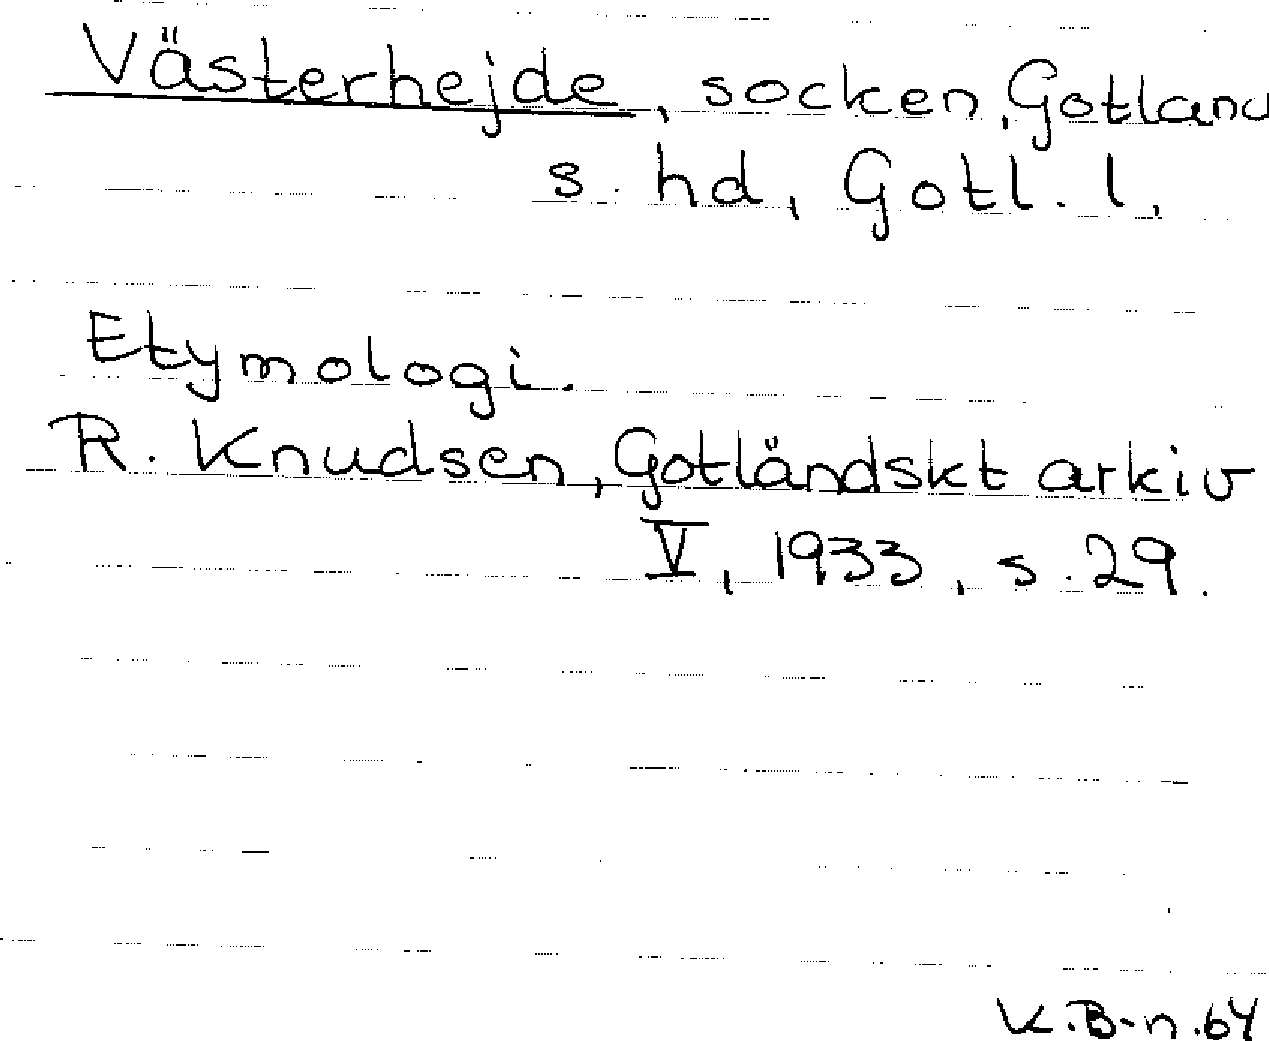 Västerhejde, socken, Gotland
s. hd, Gotl. l.
Etymologi.
R. Knudsen, Gotländskt arkiv
V, 1933, s. 29.
K.B-n. 64